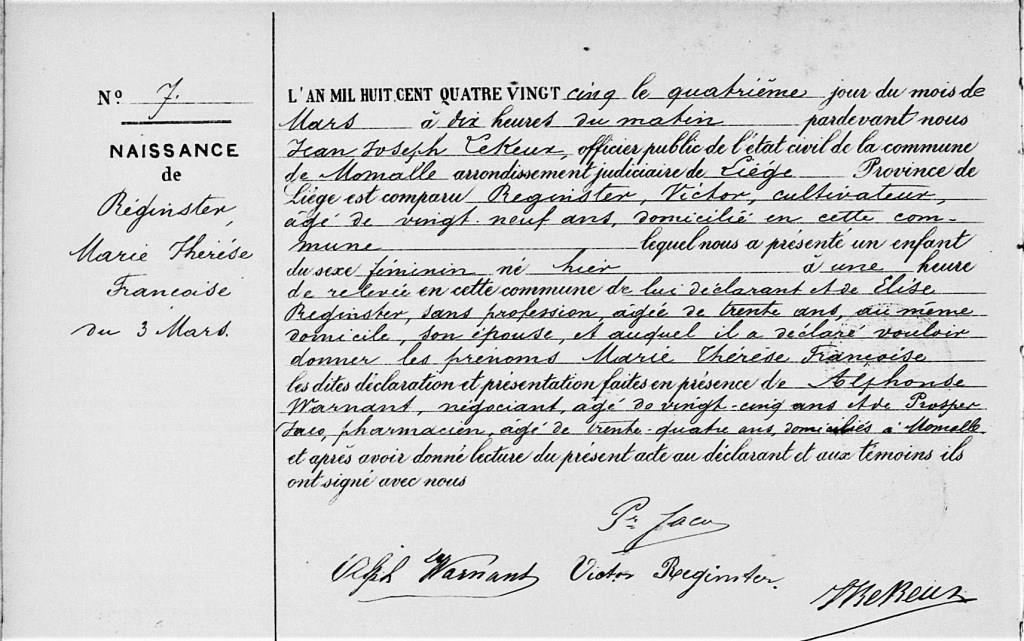 Nº 7.
NAISSANCE
de
Réginster,
Marie Thérése
Francoise
du 3 Mars.
L'AN MIL HUIT CENT QUATRE VINGT cinq le quatriême jour du mois de
Mars à dix heures du matin pardevant nous
Jean Joseph LeKeux, officier public de l'état civil de la commune
de Momalle arrondissement judiciaire de Liége Province de
Liége est comparu Reginster, Victor, cultivateur,
âgé de vingt-neuf ans, domicilié en cette com-
mune lequel nous a présenté un enfant
du sexe féminin né hier à une heure
de relevée en cette commune de lui déclarant et de Elise
Reginster, sans profession, âgée de trente ans, au même
domicile, son épouse, et auquel il a déclaré vouloir
donner les prénoms Marie Thérèse Françoise
les dites déclaration et présentation faites en présence de Alphonse
Warnant, négociant, âgé de vingt-cinq ans et de Prosper
Jaco, pharmacien, âgé de trente-quatre ans, domiciliés à Momalle.
et après avoir donné lecture du présent acte au déclarant et aux témoins ils
ont signé avec nous
Pr Jaco
Alph Warnant Victor Reginster.